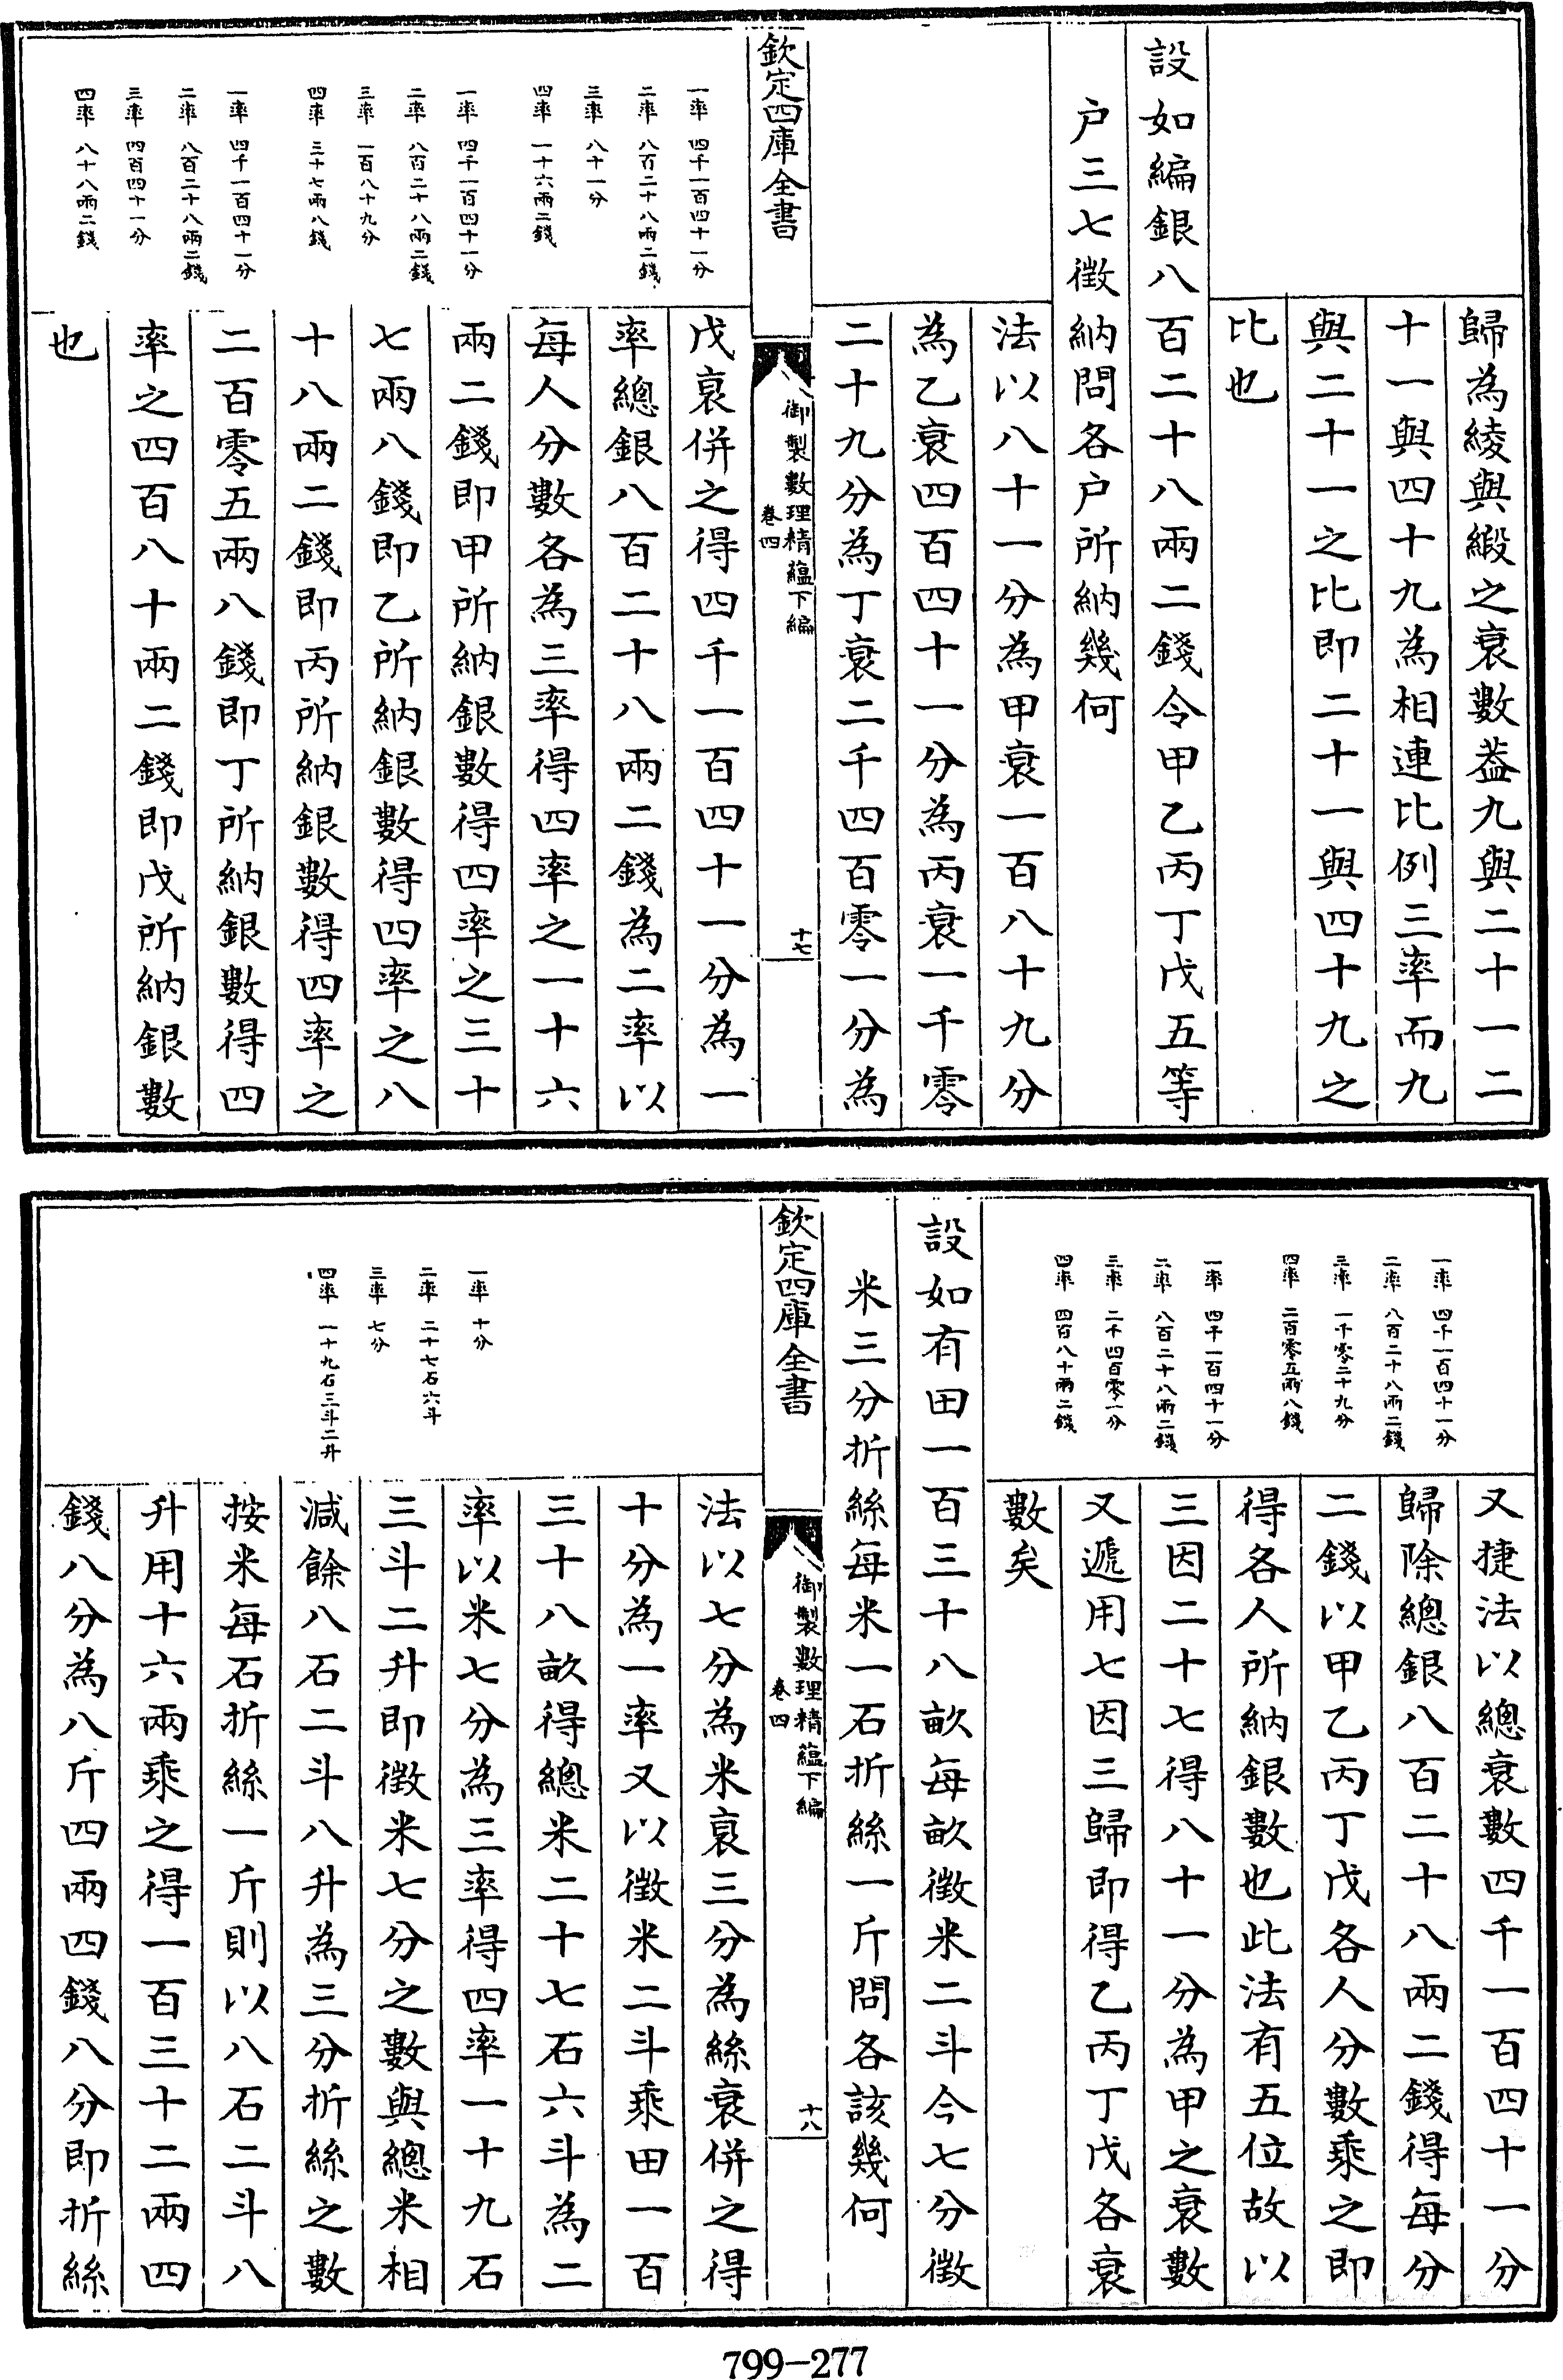 歸為綾與緞之衰數葢九與二十一二
十一與四十九為相連比例三率而九
與二十一之比即二十一與四十九之
比也
設如編銀八百二十八兩二錢令甲乙丙丁戊五等
户三七徵納問各户所納幾何
法以八十一分為甲衰一百八十九分
為乙衰四百四十一分為丙衰一千零
二十九分為丁衰二千四百零一分為
欽定四庫全書
御製數理精藴下編
卷四
十七
一率 四千一百四十一分
二率 八百二十八兩二錢
三率 八十一分
四率 一十六兩二錢
一率 四千一百四十一分
二率 八百二十八兩二錢
三率 一百八十九分
四率 三十七兩八錢
一率 四千一百四十一分
二率 八百二十八兩二錢
三率 四百四十一分
四率 八十八兩二錢
戊衰併之得四千一百四十一分為一
率總銀八百二十八兩二錢為二率以
每人分數各為三率得四率之一十六
兩二錢即甲所納銀數得四率之三十
七兩八錢即乙所納銀數得四率之八
十八兩二錢即丙所納銀數得四率之
二百零五兩八錢即丁所納銀數得四
率之四百八十兩二錢即戊所納銀數
也
一率 四千一百四十一分
二率 八百二十八兩二錢
三率 一千零二十九分
四率 二百零五兩八錢
一率 四千一百四十一分
二率 八百二十八兩二錢
三率 二千四百零一分
四率 四百八十兩二錢
又捷法以總衰數四千一百四十一分
歸除總銀八百二十八兩二錢得每分
二錢以甲乙丙丁戊各人分數乘之即
得各人所納銀數也此法有五位故以
三因二十七得八十一分為甲之衰數
又遞用七因三歸即得乙丙丁戊各衰
數矣
設如有田一百三十八畝每畝徵米二斗今七分徵
米三分折絲每米一石折絲一斤問各該幾何
欽定四庫全書
御製數理精藴下編
卷四
十八
一率 十分
二率 二十七石六斗
三率 七分
四率 一十九石三斗二升
法以七分為米衰三分為絲衰併之得
十分為一率又以徵米二斗乘田一百
三十八畝得總米二十七石六斗為二
率以米七分為三率得四率一十九石
三斗二升即徵米七分之數與總米相
減餘八石二斗八升為三分折絲之數
按米每石折絲一斤則以八石二斗八
升用十六兩乘之得一百三十二兩四
錢八分為八斤四兩四錢八分即折絲
799-277